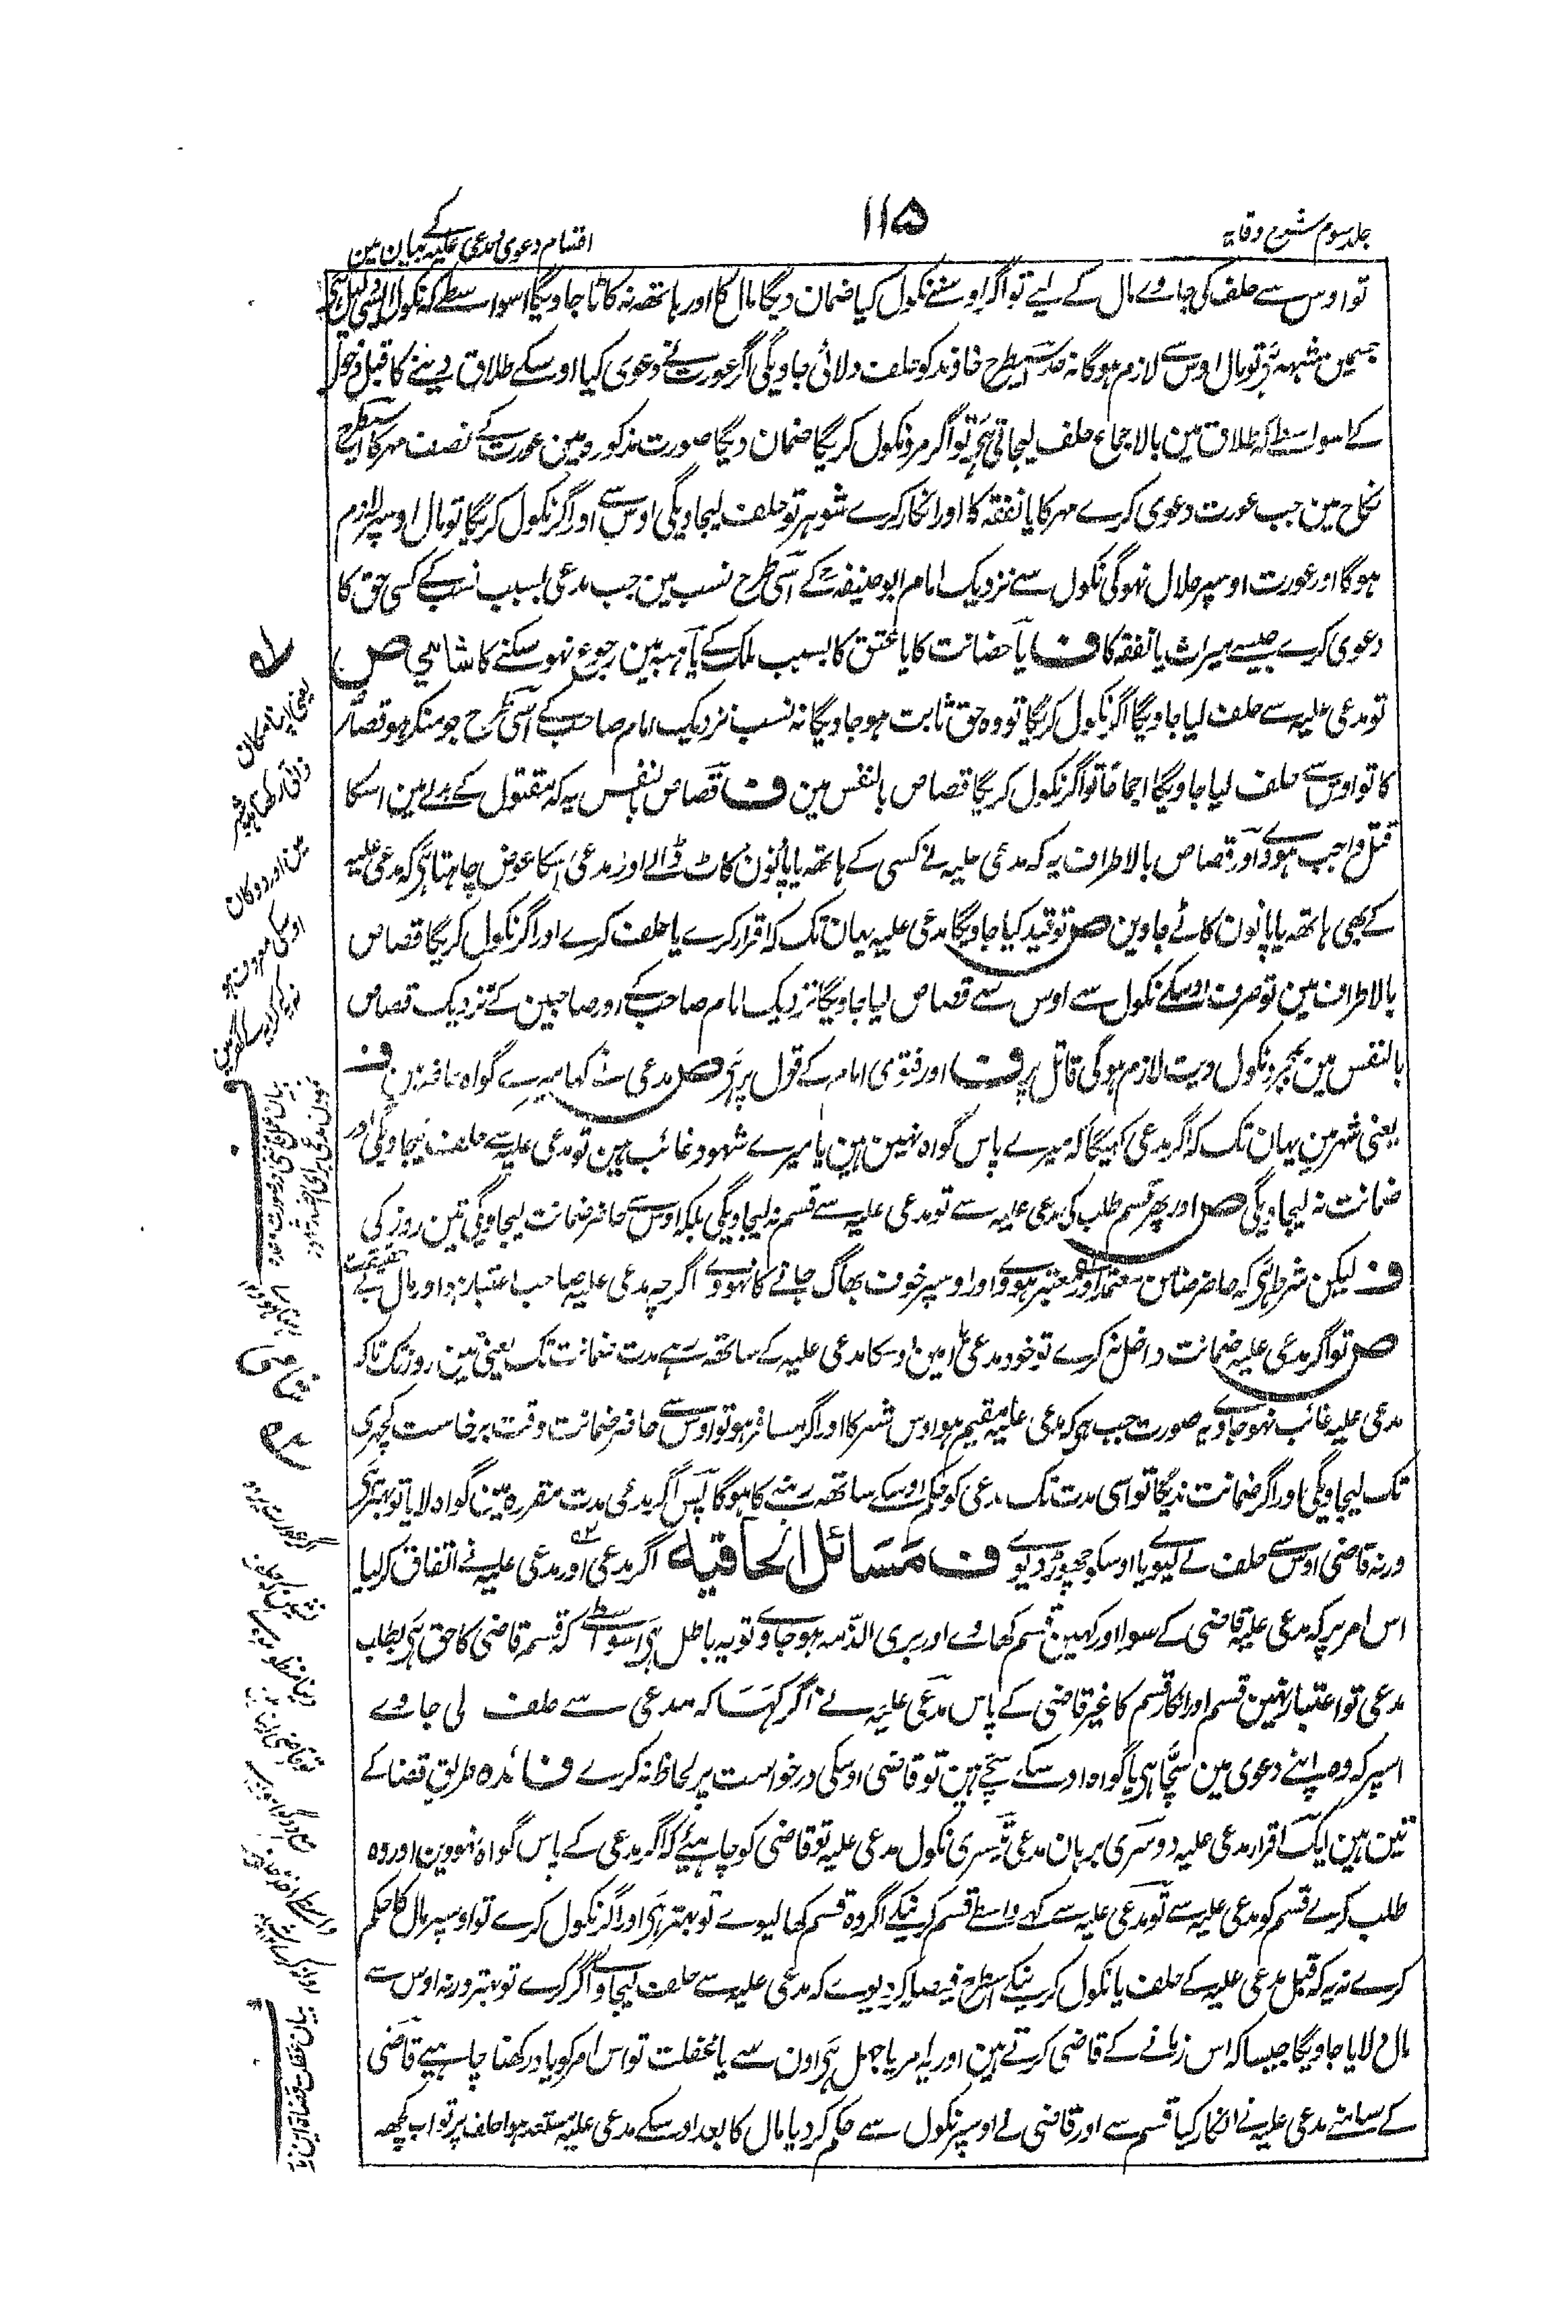 جلد سوم شرح وقایہ
۱۱۵
اقسام دعوی مدعی علیہ کے بیان مین
تو اوس سے حلف کی جاوے مال کے لیے تو اگر اوسنے نکول کیا ضمان دیگا مال کا اور ہاتھہ نہ کاٹا جاویگا اسواسطے کہ نکول
جسمین شبہہ ہی تو مال اوس سے لازم ہوگا نہ حد اسیطرح خاوند کو حلف دلائی جاویگی اگر عورت نے دعوی کیا اوسکے طلاق دینے کا قبل دخول
کے اسواسطے کہ طلاق مین بالاجماع حلف لیجاتی ہی تو اگر مرد نکول کریگا ضمان دیگا صورت مذکورہ مین عورت کے نصف مہر کا اسیطرح
نکاح مین جب عورت دعوی کرے مہر کا یا نفقہ کا اور انکار کرے شوہر تو حلف لیجاویگی اوس سے اور اگر نکول کریگا تو مال اوسپر لازم
ہوگا اور عورت اوسپر حلال نہوگی نکول سے نزدیک امام ابوحنیفہؒ کے اسی طرح نسب مین جب مدعی بسبب نسب کے کسی حق کا
دعوی کرے جیسے میراث یا نفقہ کا ف یا حضانت کا یا عتق کا بسبب ملک کے یا ہبہ مین رجوع نہو سکنے کا شامی ص
تو مدعی علیہ سے حلف لیا جاویگا اگر نکول کریگا تو وہ حق ثابت ہو جاویگا نہ نسب نزدیک امام صاحب کے اسی طرح جو منکر ہو قصاص
کا تو اوس سے حلف لیا جاویگا اجماعًا تو اگر نکول کریگا قصاص بالنفس مین ف قصاص بالنفس یہ کہ مقتول کے بدلے مین اسکا
قتل واجب ہووے اور قصاص بالاطراف یہ کہ مدعی علیہ نے کسی کے ہاتھہ یا پانون کاٹ ڈالے اور مدعی اسکا عوض چاہتا ہی کہ مدعی علیہ
کے بھی ہاتھہ یا پانون کاٹے جاوین ص تو قید کیا جاویگا مدعی علیہ یہان تک کہ اقرار کرے یا حلف کرے اور اگر نکول کریگا قصاص
بالاطراف مین تو صرف اوسکے نکول سے اوس سے قصاص لیا جاویگا نزدیک امام صاحب کے اور صاحبین کے نزدیک قصاص
بالنفس مین بمجرد نکول دیت لازم ہوگی قاتل پر ف اور فتوی امام کے قول پر ہی ص مدعی نے کہا میرے گواہ حاضر ہین ف
یعنی شہر مین یہان تک کہ اگر مدعی کہیگا کہ میرے پاس گواہ نہین ہین یا میرے شہود غائب ہین تو مدعی علیہ سے حلف لیجاویگی اور
ضمانت نہ لیجاویگی ص اور پھر قسم طلب کی مدعی علیہ سے تو مدعی علیہ سے قسم نہ لیجاویگی بلکہ اوس سے حاضر ضمانت لیجاویگی تین روز کی
ف لیکن شرط یہ ہی کہ حاضر ضامن معتمد اور معتبر ہووے اور اوسپر خوف بھاگ جانے کا نہووے اگرچہ مدعی علیہ صاحب اعتبار ہو اور مال بے حقیقت
ص تو اگر مدعی علیہ ضمانت داخل نہ کرے تو خود مدعی یا امین اوسکا مدعی علیہ کے ساتھہ رہے مدت ضمانت تک یعنی تین روز تک تاکہ
مدعی علیہ غائب نہو جاوے یہ صورت جب ہی کہ مدعی علیہ مقیم ہو اوس شہر کا اور اگر مسافر ہو تو اوس سے حاضر ضمانت وقت برخاست کچہری
تک لیجاویگی اور اگر ضمانت ندیگا تو اسی مدت تک مدعی کو حکم اوسکے ساتھہ رہنے کا ہوگا پس اگر مدعی مدت مقررہ مین گواہ لایا تو بہتر ہی
ورنہ قاضی اوس سے حلف لے لیوے یا اوسکو چھوڑ دیوے ف مسائل الحاقیہ اگر مدعی اور مدعی علیہ نے اتفاق کر لیا
اس امر پر کہ مدعی علیہ قاضی کے سوا اور کہین قسم کھاوے اور بری الذمہ ہو جاوے تو یہ باطل ہی اسواسطے کہ قسم قاضی کا حق ہی بطلب
مدعی تو اعتبار نہین قسم اور انکار قسم کا غیر قاضی کے پاس مدعی علیہ نے اگر کہا کہ مدعی سے حلف لی جاوے
اسپر کہ وہ اپنے دعوی مین سچا ہی یا گواہ اوسکے سچے ہین تو قاضی اوسکی درخواست پر لحاظ نہ کرے فائدہ طریق قضا کے
تین ہین ایک اقرار مدعی علیہ دوسری برہان مدعی تیسری نکول مدعی علیہ تو قاضی کو چاہیئے کہ اگر مدعی کے پاس گواہ نہووین اور وہ
طلب کرے قسم کو مدعی علیہ سے تو مدعی علیہ سے کہے واسطے قسم کرنیکے اگر وہ قسم کھا لیوے تو بہتر ہی اور اگر نکول کرے تو اوسپر مال کا حکم
کرے نہ یہ کہ قبل مدعی علیہ کے حلف یا نکول کرنیکے اسطرح فیصلہ کر دیوے کہ مدعی علیہ سے حلف لیجاوے اگر کرے تو بہتر ورنہ اوس سے
مال دلایا جاویگا جیسا کہ اس زمانے کے قاضی کرتے ہین اور یہ امر یا جہل ہی اون سے یا غفلت تو اس امر کو یاد رکھنا چاہیے قاضی
کے سامنے مدعی علیہ نے انکار کیا قسم سے اور قاضی نے اوسپر نکول سے حکم کر دیا مال کا بعد اوسکے مدعی علیہ مستعد ہوا حلف پر تو اب کچھہ
یعنی اپنا مکان
مین اور دوکان
شامی